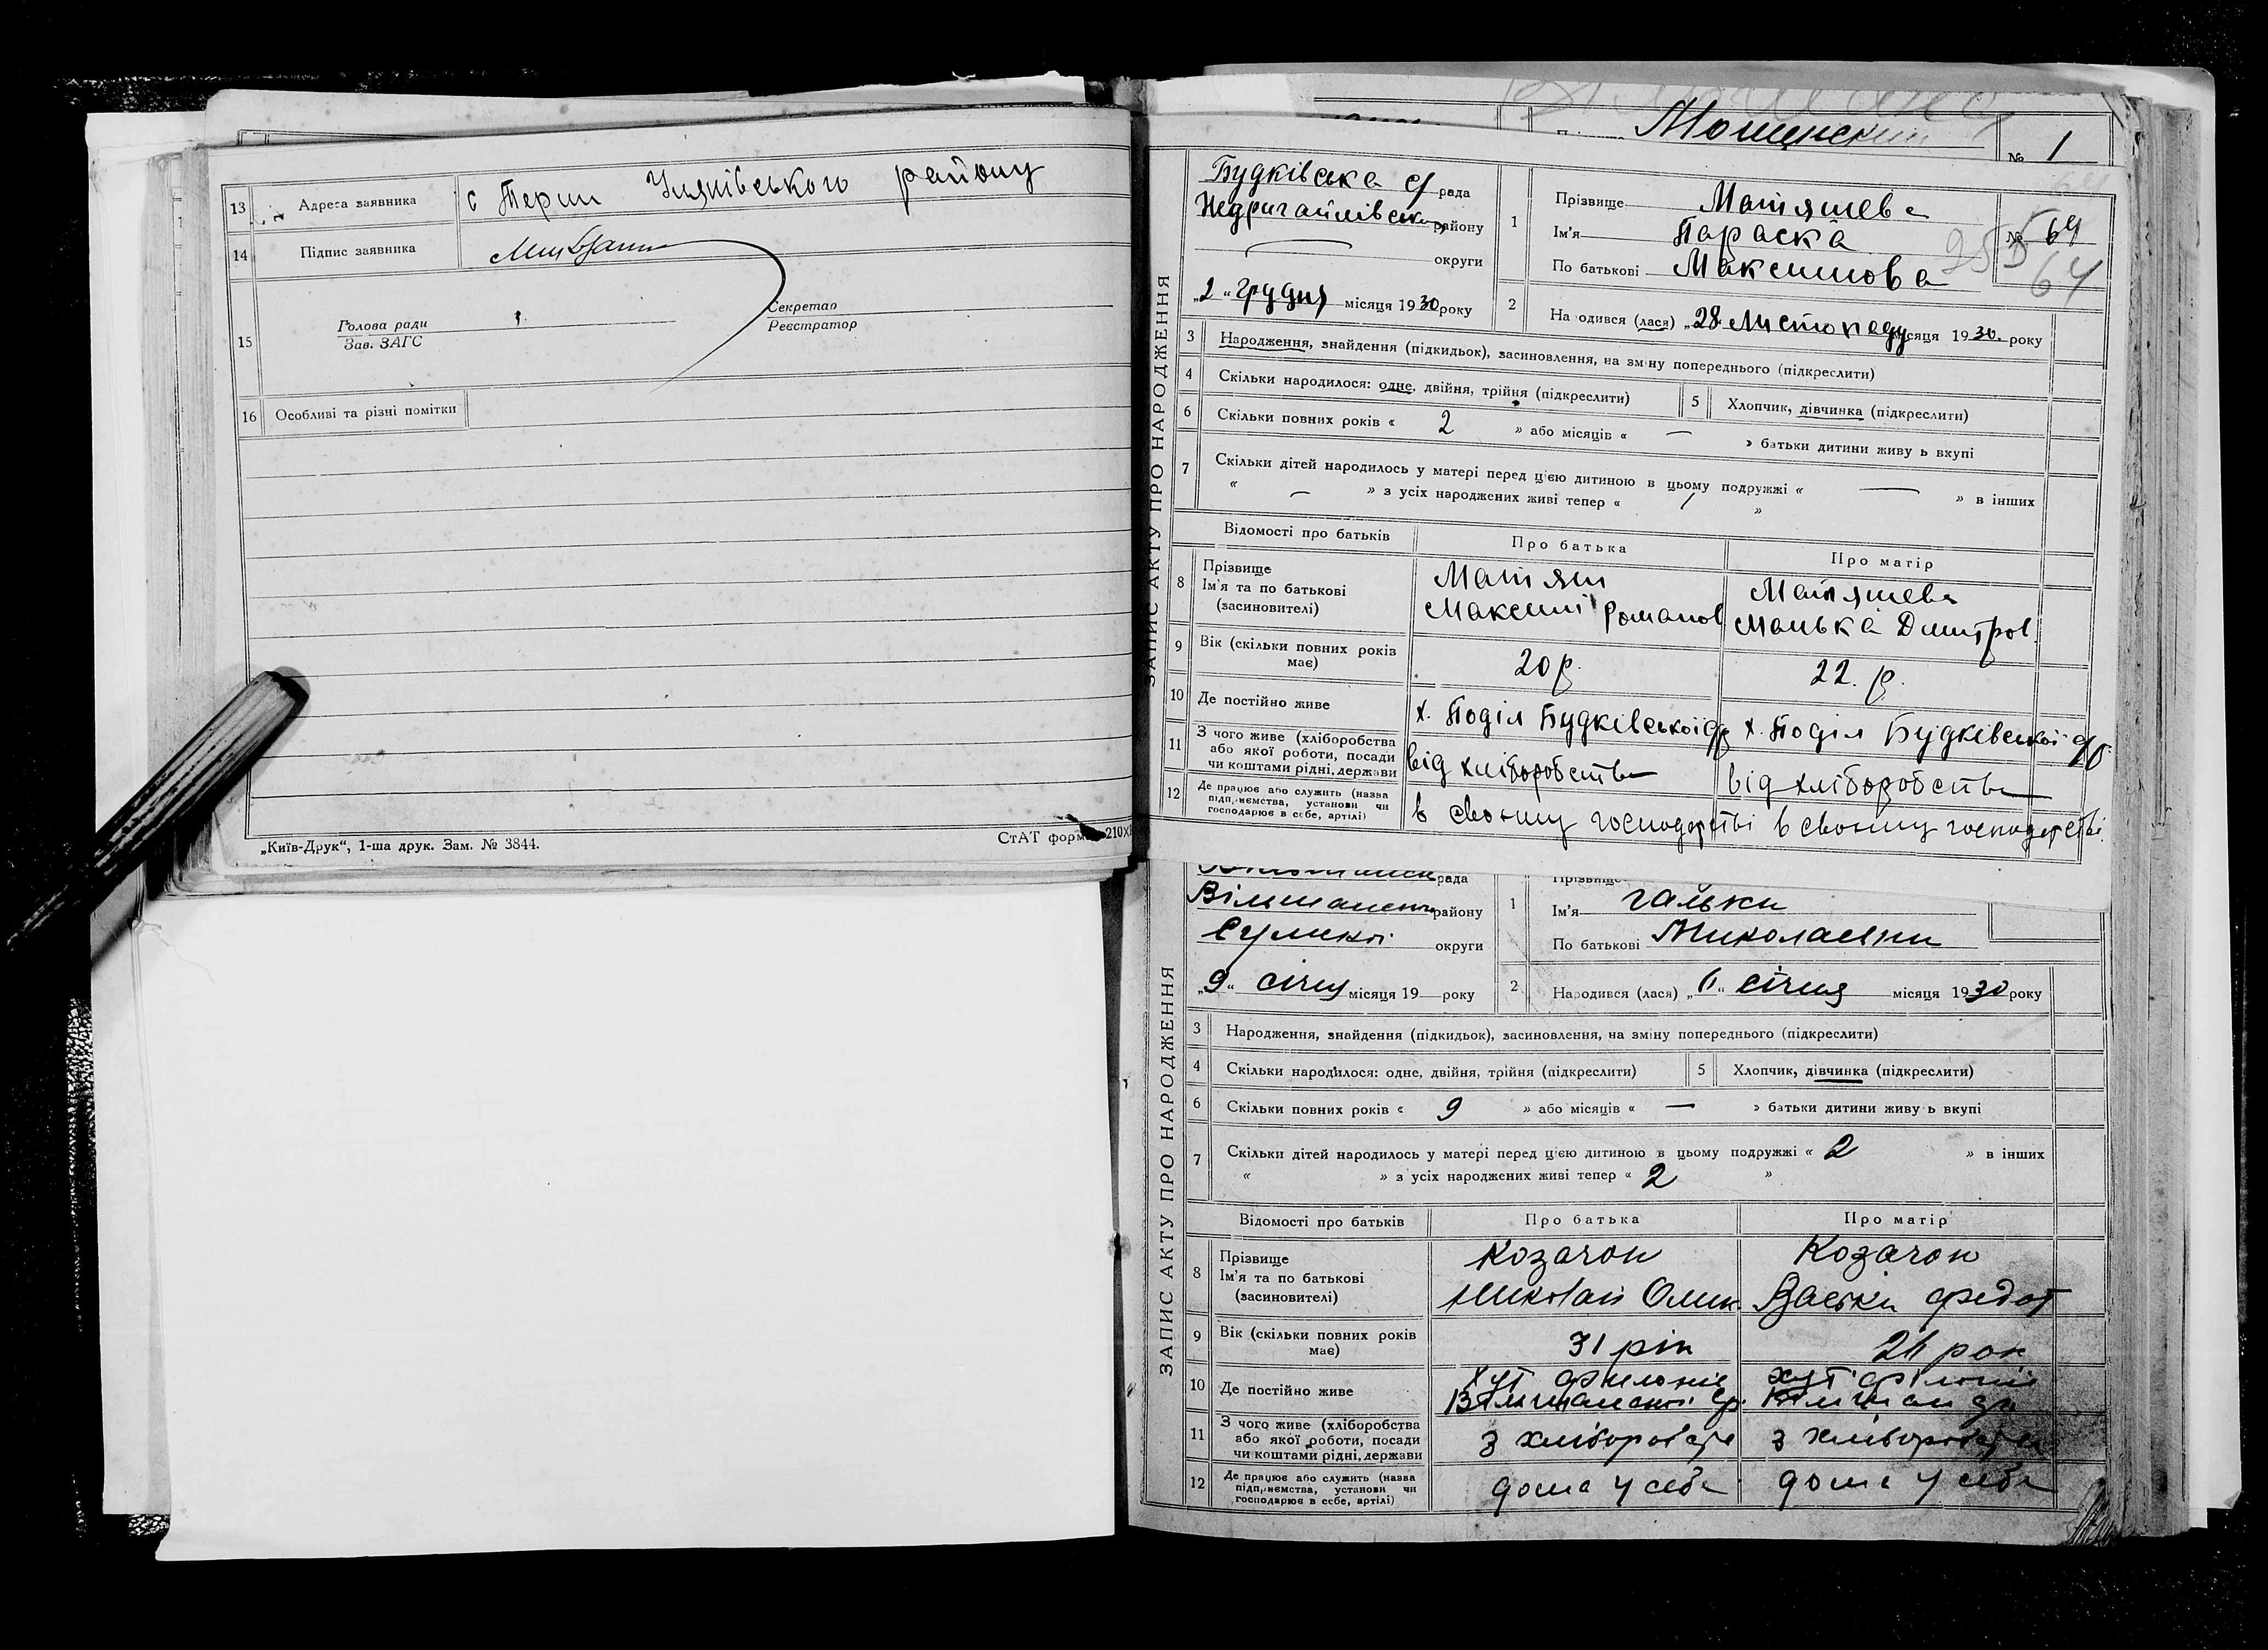 13 Адреса заявника с Терни Улянівського району
14 Підпис заявника
15 Голова ради
Зав. ЗАГС
Секретар
Реєстратор
16 Особливі та різні помітки
„Київ-Друк“, 1-ша друк. Зам. № 3844.
СтАТ форм 210Х
№ 1
ЗАПИС АКТУ ПРО НАРОДЖЕННЯ
Будківська с/рада
Недригайлівськ району
округи
„2“ грудня місяця 1930 року
1 Прізвище Матяшева
Ім'я Параска
По батькові Максимова
№ 64
64
2 Народився (лася) „28“ Листопаду місяця 1930 року
3 Народження, знайдення (підкидьок), засиновлення, на зміну попереднього (підкреслити)
4 Скільки народилося: одне, двійня, трійня (підкреслити)
5 Хлопчик, дівчинка (підкреслити)
6 Скільки повних років « 2 » або місяців « — » батьки дитини живуть вкупі
7 Скільки дітей народилось у матері перед цією дитиною в цьому подружжі « — » в інших
« — » з усіх народжених живі тепер « 1 »
Відомості про батьків Про батька Про матір
8 Прізвище Матяш Матяшева
Ім'я та по батькові Максим Романов Манька Дмитров.
(засиновителі)
9 Вік (скільки повних років має) 20 р. 22. р.
10 Де постійно живе х. Поділ Будківської с/р х. Поділ Будківської с/р.
11 З чого живе (хліборобства
або якої роботи, посади
чи коштами рідні, держави від хліборобства від хліборобства
12 Де працює або служить (назва
підприємства, установи чи
господарює в себе, артілі) в своїому господарстві в своїому господарстві
ЗАПИС АКТУ ПРО НАРОДЖЕННЯ
рада
Вільшанськ району
Сумської округи
„9“ січня місяця 19 — року
Прізвище
1 Ім'я Гальки
По батькові Миколаевни
2 Народився (лася) „6“ січня місяця 1930 року
3 Народження, знайдення (підкидьок), засиновлення, на зміну попереднього (підкреслити)
4 Скільки народилося: одне, двійня, трійня (підкреслити)
5 Хлопчик, дівчинка (підкреслити)
6 Скільки повних років « 9 » або місяців « — » батьки дитини живуть вкупі
7 Скільки дітей народилось у матері перед цією дитиною в цьому подружжі « 2 » в інших
« » з усіх народжених живі тепер « 2 »
Відомості про батьків Про батька Про матір
8 Прізвище Козачок Козачок
Ім'я та по батькові
(засиновителі) Николай Федот
9 Вік (скільки повних років має) 31 рік 26 рок
10 Де постійно живе хут
11 З чого живе (хліборобства
або якої роботи, посади
чи коштами рідні, держави з хліборобства з хліборобства
12 Де працює або служить (назва
підприємства, установи чи
господарює в себе, артілі) дома у себе дома у себе